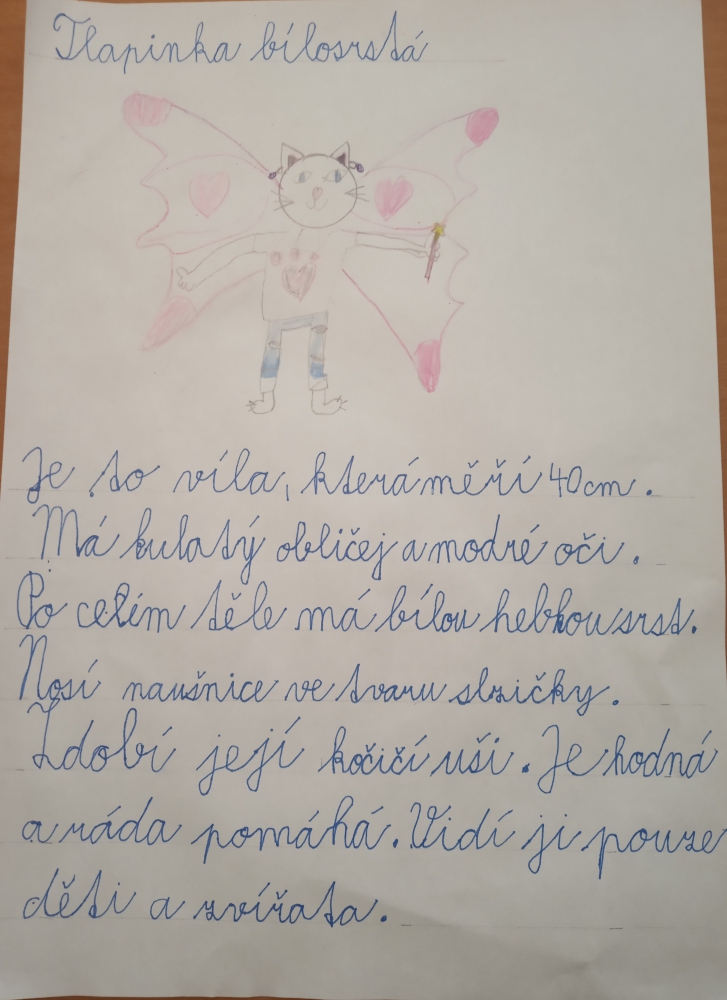 Tlapinka bílosrstá
Je to víla, která měří 40cm.
Má kulatý obličej a modré oči.
Po celém těle má bílou hebkou srst.
Nosí naušnice ve tvaru slzičky.
Zdobí její kočičí uši. Je hodná
a ráda pomáhá. Vidí ji pouze
děti a zvířata.